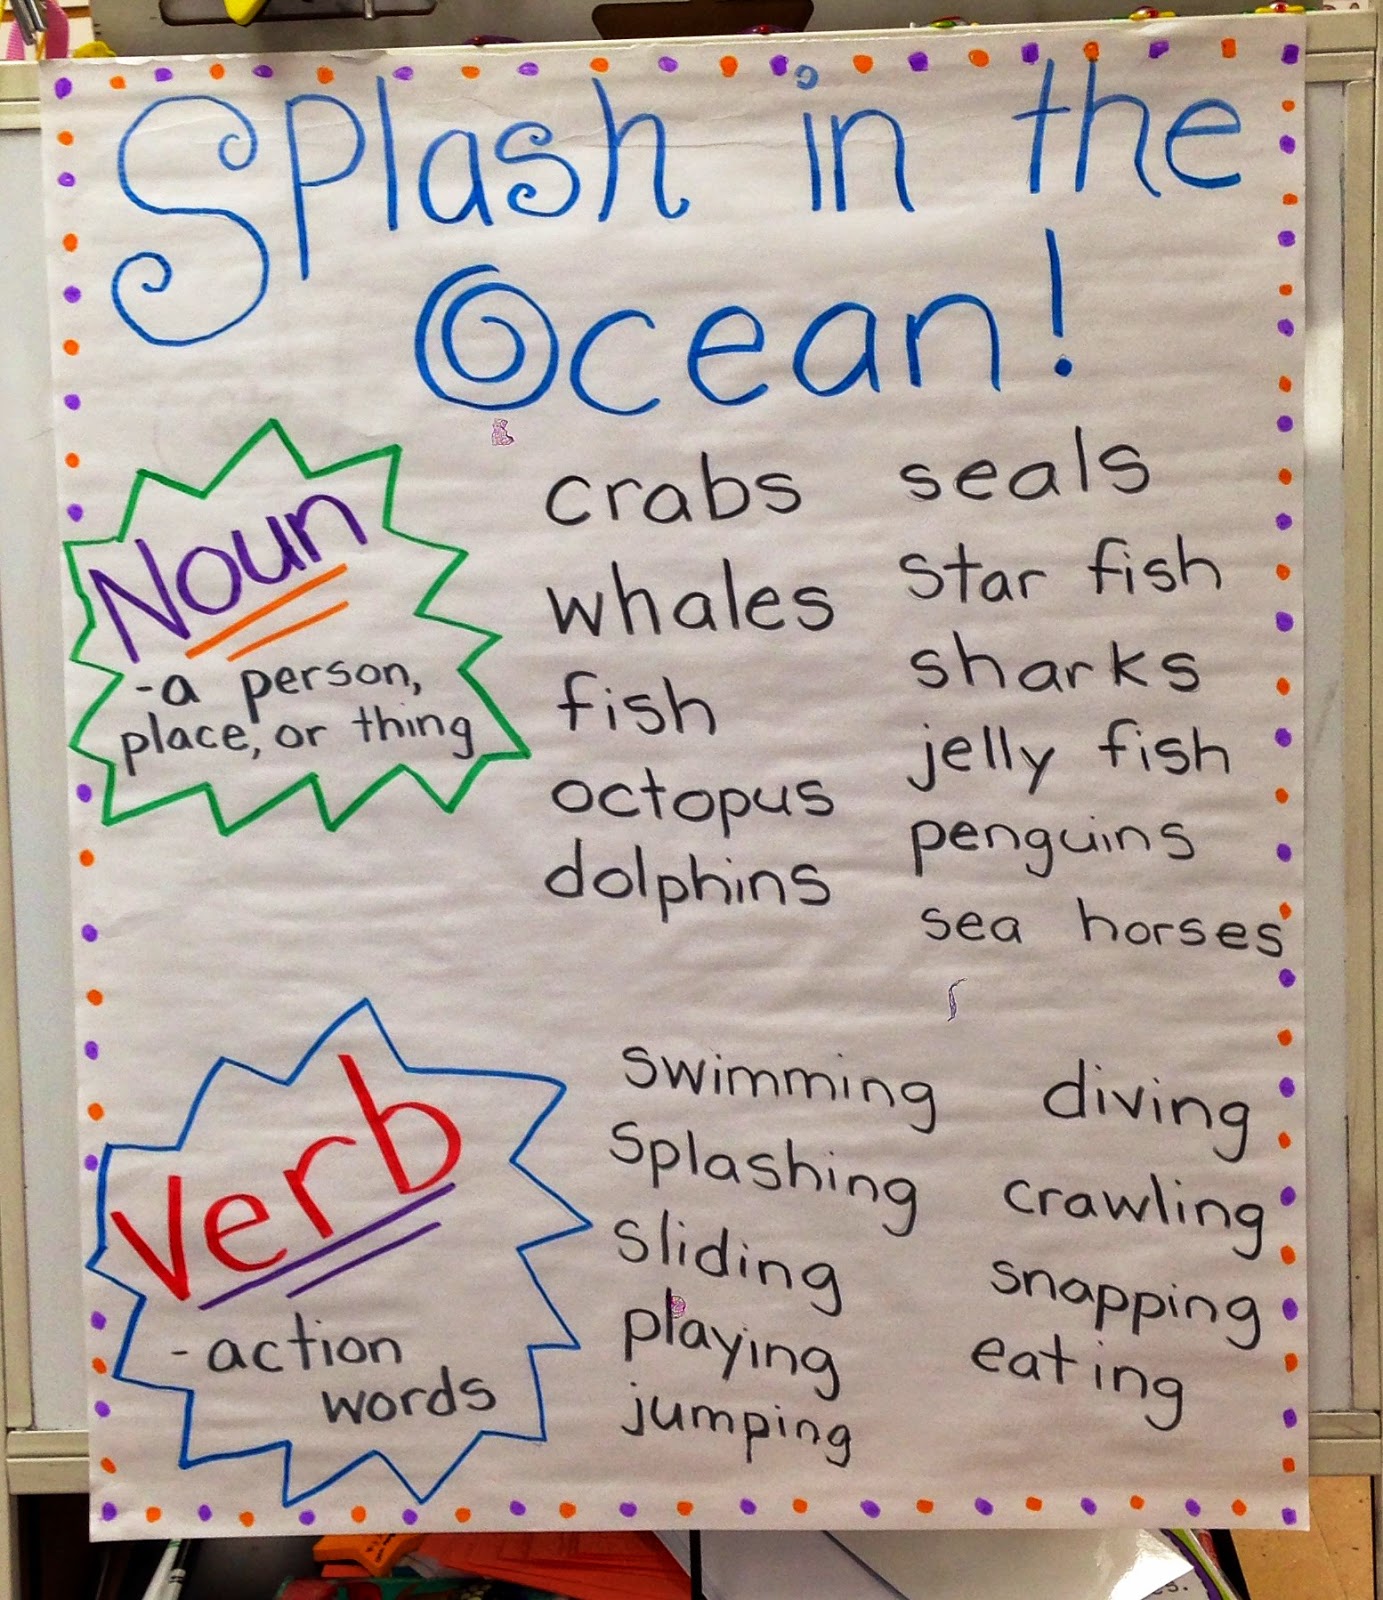 Splash in the
Ocean!
Noun
-a person,
place, or thing
crabs
whales
fish
octopus
dolphins
seals
star fish
sharks
jelly fish
penguins
sea horses
Verb
-action
words
swimming
Splashing
sliding
playing
jumping
diving
crawling
snapping
eating